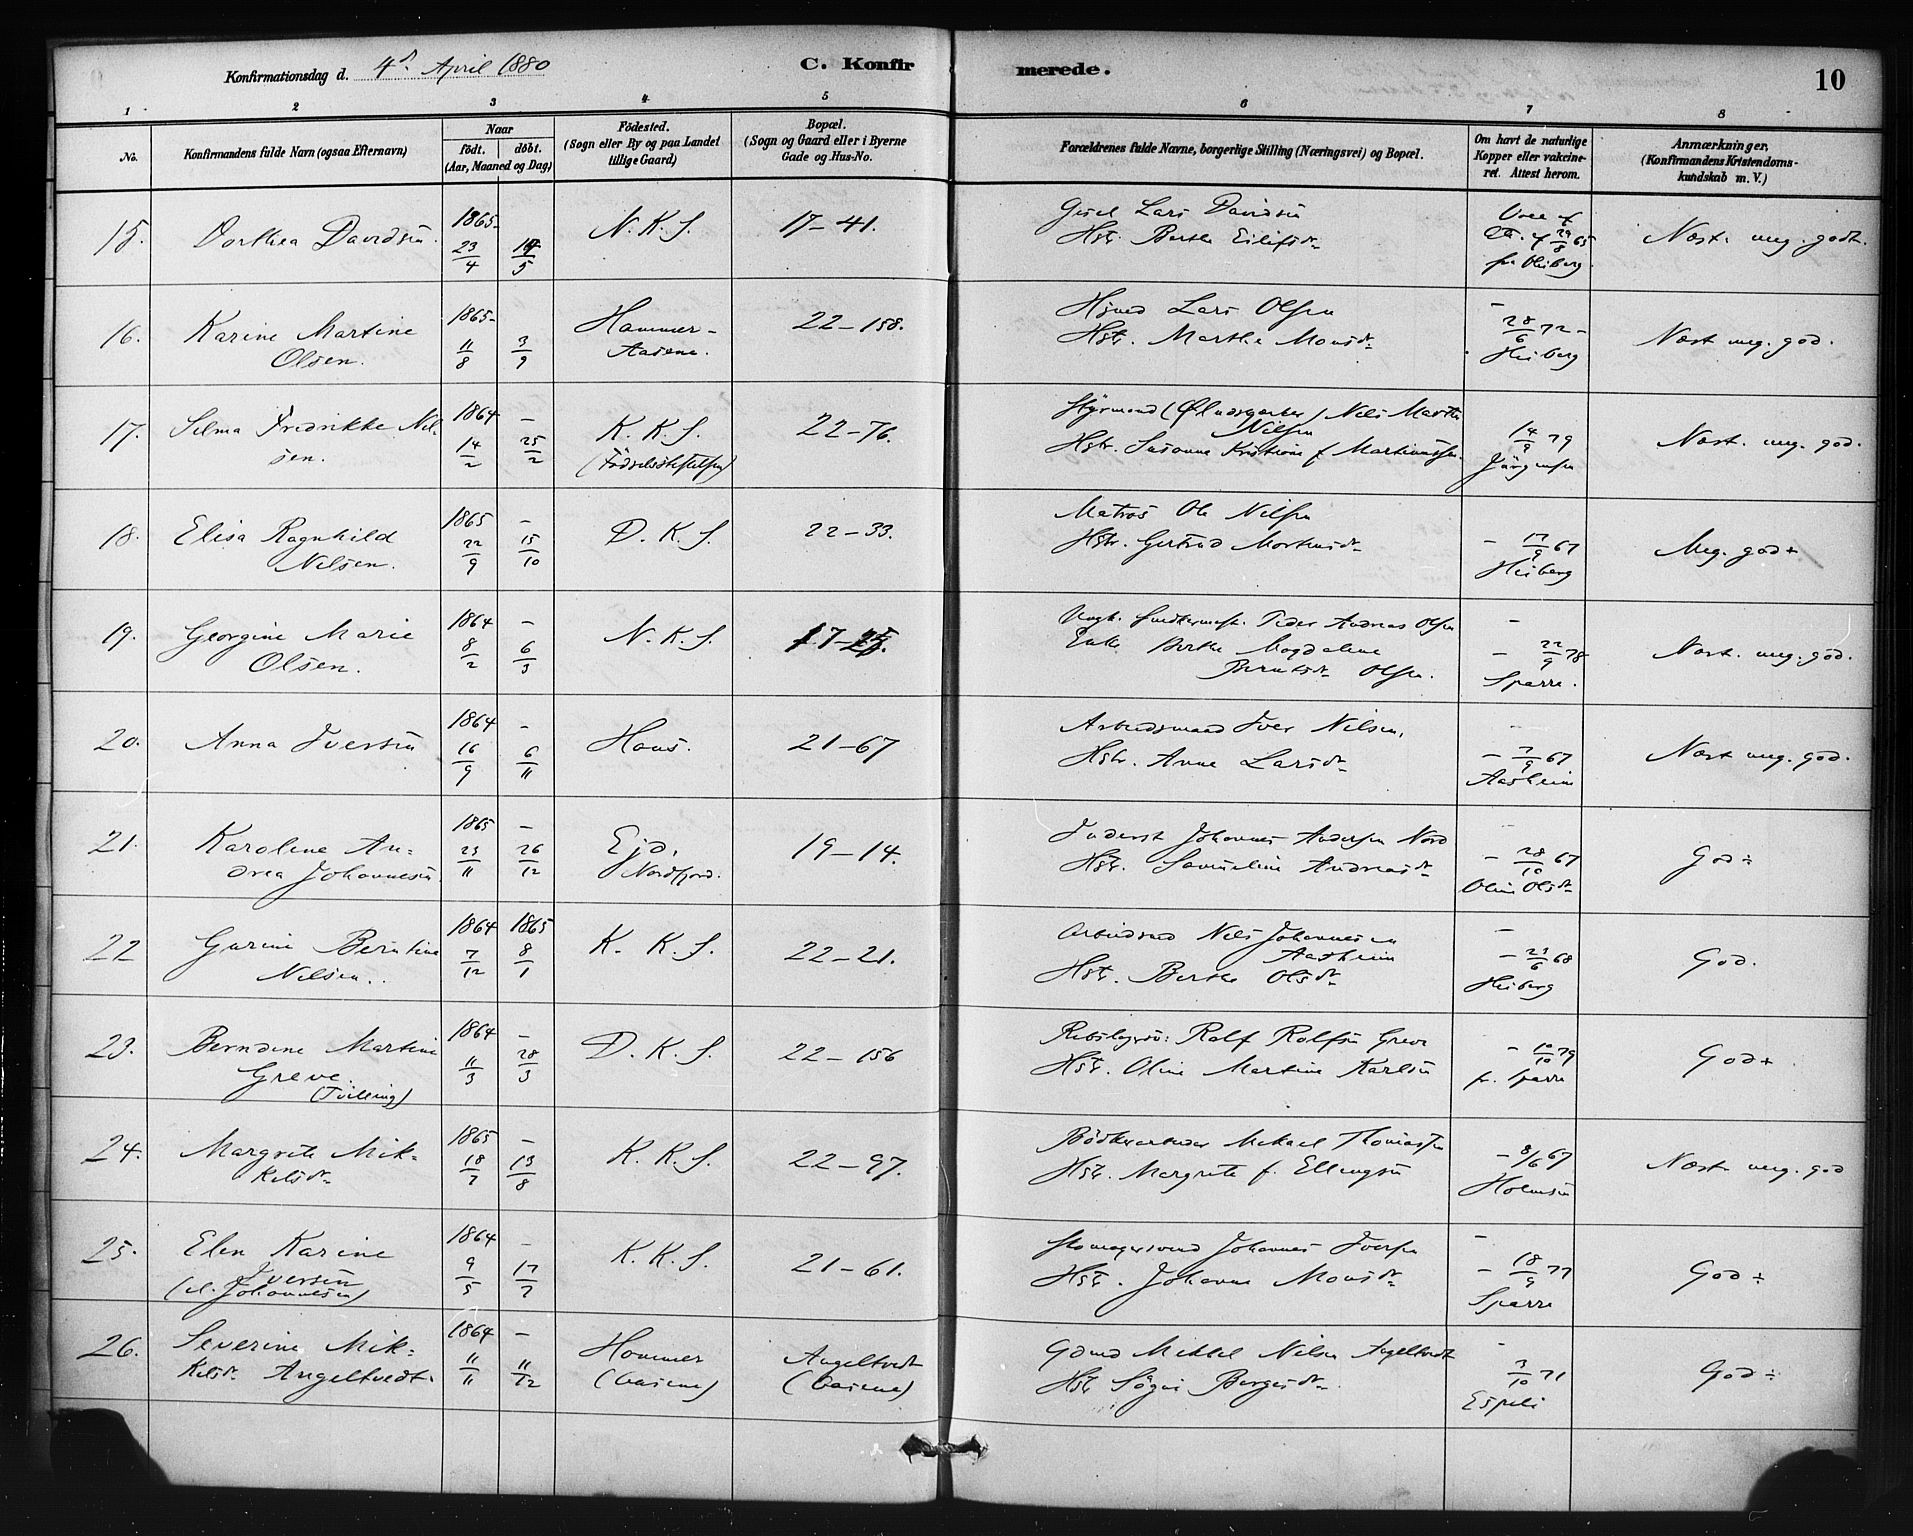 Konfirmationsdag d. 4d April 1880
C. Konfirmerede.
10
1 2 3 4 5 6 7 8
No.
Konfirmandens fulde Navn (ogsaa Efternavn)
Naar
födt. döbt.
(Aar, Maaned og Dag)
Födested.
(Sogn eller By og paa Landet
tillige Gaard)
Bopæl.
(Sogn og Gaard eller i Byerne
Gade og Hus-No.
Forældrenes fulde Navne, borgerlige Stilling (Næringsvei) og Bopæl.
Om havt de naturlige
Kopper eller vakcine-
ret. Attest herom.
Anmærkninger,
(Konfirmandens Kristendoms-
kundskab m. V.)
15. Dorthea Davidsen. 1865 23/4 5 N. K. S. 17-41.
Lars Davidsen
Hstr. Berthe Eilifsdr
29/8 65
Heiberg
Næst. meg. godt.
16. Karine Martine
Olsen.
1865 11/8 3/9
Hammer-
Aasene.
22-158.
Lars Olsen
Hstr. Marthe Monsdr
- 28/6 72 -
Heiberg
Næst meg. god.
17. Selma Fredrikke Nil-
sen.
1864 - 14/2 25/2
K. K. S.
(Fødselsstiftelsen)
22-76.
Styrmand Nils Martin
Nilsen
Hstr. Susanne Kristiane f Martinussen.
14/9 79
Jürgensen
Næst. meg. god.
18. Elisa Ragnhild
Nilsen.
1865 - 22/9 15/10
D. K. S.
22-33.
Matros Ole Nilsen
Hstr. Gertrud Mortensdr
- 17/9 67
Heiberg
Meg. god+
19. Georgine Marie
Olsen.
1864 - 8/2 6/3
N. K. S.
17-25.
Peder Andreas Olsen
Enke Berthe Magdalene
Berntsdr Olsen.
- 22/9 78
Sparre.
Næst. meg. god.
20. Anna Iversen
1864 - 16/9 6/11
Haus.
21-67
Arbeidsmand Iver Nilsen.
Hstr. Anne Larsdr
- 7/9 67
Aasheim
Næst meg. god.
21. Karoline An-
drea Johannesen.
1865 - 23/11 26/12
Ejd,
Nordfjord.
19-14.
Inderst Johannes Andersen Nord
Hstr. Samueline Andreasdr
- 28/10 67
Oline Olsdr
God ÷
22 Gurine Berntine
Nilsen.
1864 7/12 1865 8/1
K. K. S.
22-21.
Arbeidsmd Nils Johannesen
Aasheim
Hstr. Berthe Olsdr
- 23/6 68
Heiberg
God.
23. Berndine Martine
Greve.
(Tvilling)
1864 - 11/3 28/3
D. K. S.
22-156
Rolf Rolfsen Greve
Hstr. Oline Martine Karlsen
- 10/10 79
fr. Sparre
God+
24. Margrete Mik-
kelsdr
1865 - 18/7 13/8
K. K. S.
22-97.
Bødkerarbeider Mikael Thomassen
Hstr. Margrete f. Ellingsen
- 8/6 67
Holmsen
Næst meg. god
25. Elen Karine
Iversen
(el. Johannesen)
1864 - 9/5 17/7
K. K. S.
21-61.
Skomagersvend Johannes Iversen
Hstr. Johanne Monsdr
- 18/9 77
Sparre
God ÷
26. Severine Mik-
kelsdr Angeltvedt.
1864 - 11/11 11/12
Hammer
(Aasene)
Angeltvedt
(Aasene)
Gdmd Mikkel Nilsen Angeltvedt
Hstr Børgesdr
3/10 71
Espeli
God ÷